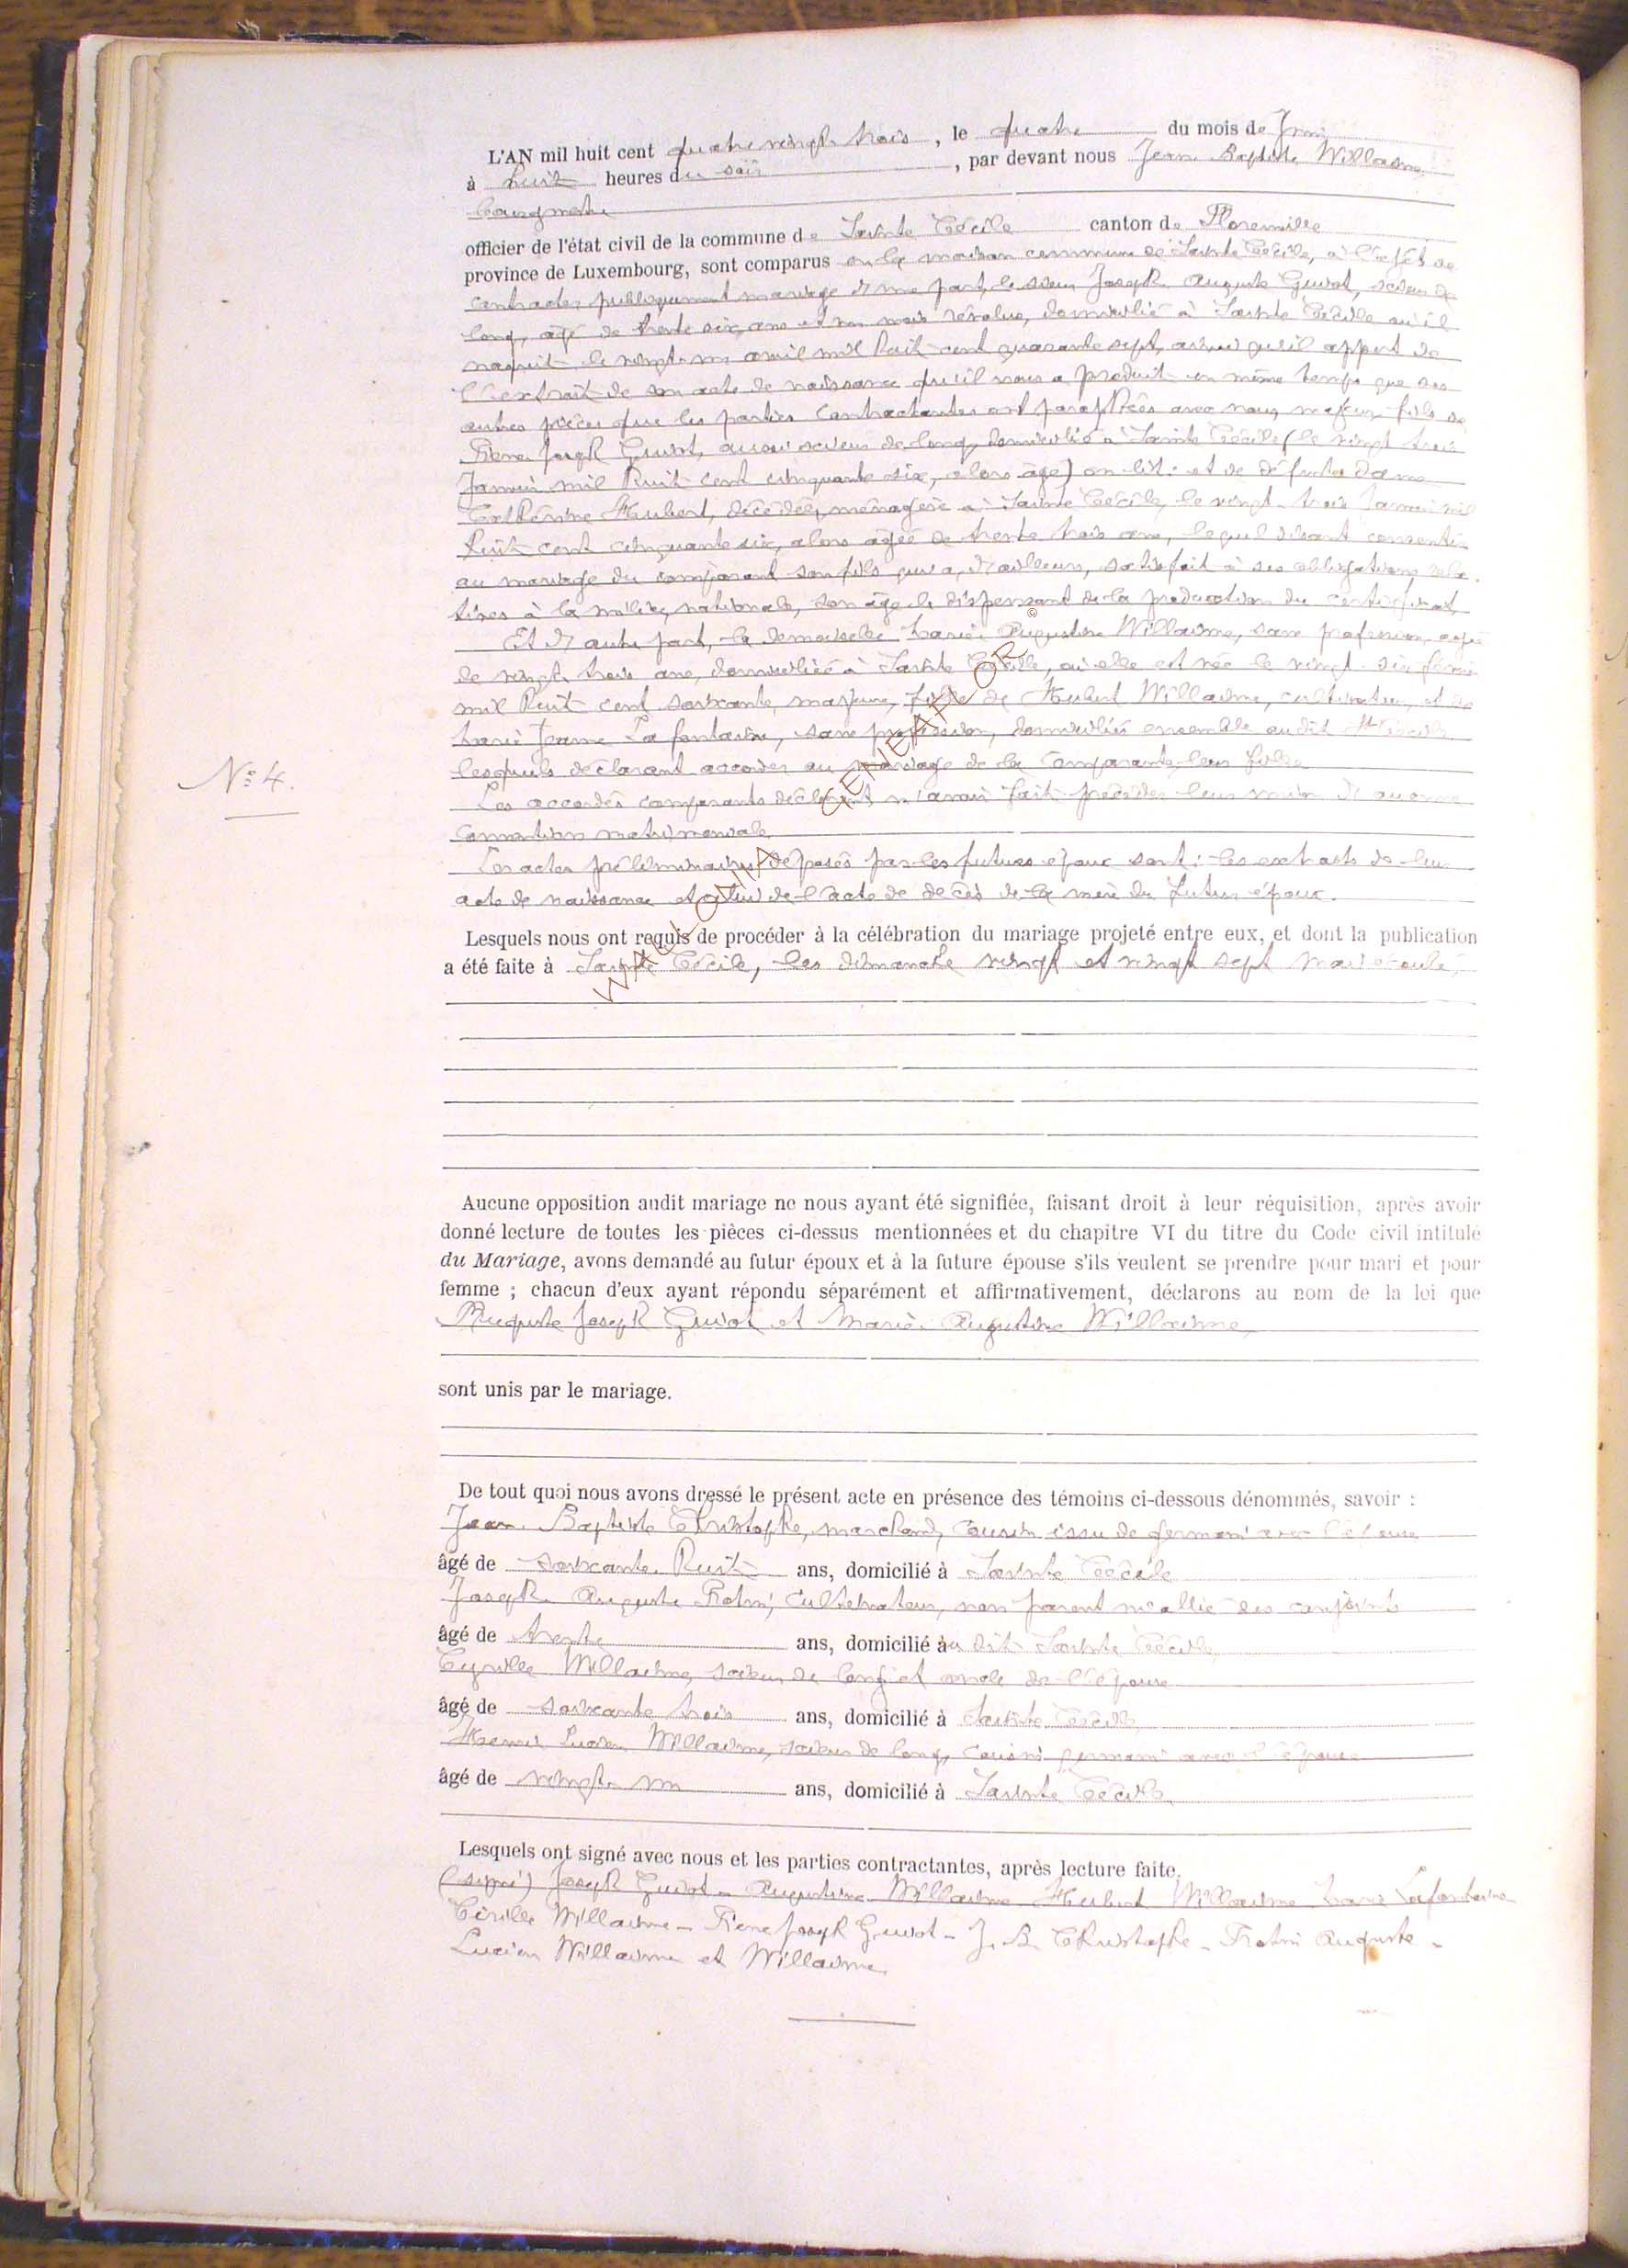 L'AN mil huit cent quatre vingt trois, le quatre du mois de Juin
à huit heures du soir, par devant nous Jean Baptiste Willaime
bourgmestre
officier de l'état civil de la commune de Sainte Cécile canton de Florenville
province de Luxembourg, sont comparus en la maison commune de Sainte Cécile, à l'effet de
contracter publiquement mariage d'une part, le sieur Joseph Auguste Guiot, scieur de
long, âgé de trente six ans et un mois révolus, domicilié à Sainte Cécile où il
naquit le vingt un avril mil huit cent quarante sept, ainsi qu'il appert de
l'extrait de son acte de naissance qu'il nous a produit en même temps que ses
autres pièces que les parties contractantes ont paraphées avec nous, majeur, fils de
Pierre Joseph Guiot, aussi scieur de long, domicilié à Sainte Cécile (le vingt trois
Janvier mil huit cent cinquante six, alors âgé) on lit: et de défunte dame
Cathérine Hubert, décédée, ménagère à Sainte Cécile, le vingt-trois Janvier mil
huit cent cinquante six, alors âgée de trente trois ans, lequel disant consentir
au mariage du comparant son fils qui a, d'ailleurs, satisfait à ses obligations rela-
tives à la milice nationale, son âge le dispensant de la production du certificat,
Et d'autre part, la demoiselle Marie Augustine Willaime, sans profession, âgée
de vingt trois ans, domiciliée à Sainte Cécile, où elle est née le vingt-six février
mil huit cent soixante, majeure, fille de Hubert Willaime, cultivateur, et de
Marie Jeanne Lafontaine, sans profession, domiciliés ensemble au dit Ste Cécile
lesquels déclarant accorder au mariage de la comparante leur fille.
Les accordés comparants déclarent n'avoir fait précéder leur union d'aucune
convention matrimoniale
Les actes préliminaires déposés par les futurs époux sont: les extraits de leur
acte de naissance et celui de l'acte de décès de la mère du futur époux.
N° 4.
Lesquels nous ont requis de procéder à la célébration du mariage projeté entre eux, et dont la publication
a été faite à Sainte Cécile, les dimanche vingt et vingt sept mai écoulé,
WALLONIA GENEAH ©OR
Aucune opposition audit mariage ne nous ayant été signifiée, faisant droit à leur réquisition, après avoir
donné lecture de toutes les pièces ci-dessus mentionnées et du chapitre VI du titre du Code civil intitulé
du Mariage, avons demandé au futur époux et à la future épouse s'ils veulent se prendre pour mari et pour
femme ; chacun d'eux ayant répondu séparément et affirmativement, déclarons au nom de la loi que
Auguste Joseph Guiot et Marie Augustine Willaime
sont unis par le mariage.
De tout quoi nous avons dressé le présent acte en présence des témoins ci-dessous dénommés, savoir :
Jean Baptiste Christophe, marchand, cousin issu de germain avec l'épouse
âgé de soixante huit ans, domicilié à Sainte Cécile
Joseph Auguste cultivateur, non parent ni allié des conjoints
âgé de trente ans, domicilié au dit Sainte Cécile
Cyrille Willaime, scieur de long et oncle de l'épouse
âgé de soixante trois ans, domicilié à Sainte Cécile
Henri Lucien Willaime, scieur de long, cousin germain avec l'épouse
âgé de vingt un ans, domicilié à Sainte Cécile
Lesquels ont signé avec nous et les parties contractantes, après lecture faite.
(signé) Joseph Guiot - Augustine Willaime Hubert Willaime Marie Lafontaine
Cirille Willaime - Pierre Joseph Guiot - J. B. Christophe - Auguste -
Lucien Willaime et Willaime